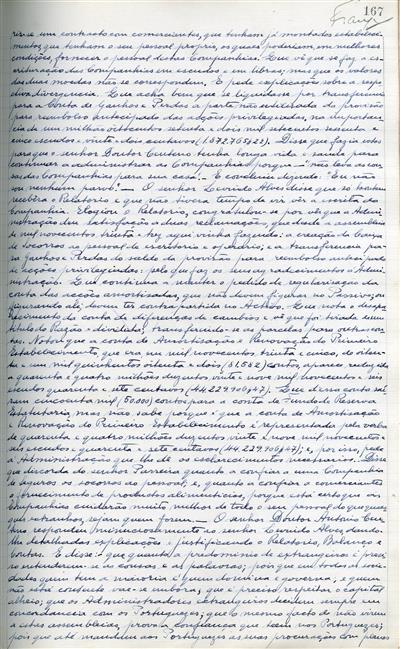 167
Fraújo
fizesse um contracto com comerciantes, que tenham já montados estabeleci-
mentos, que tenham o seu pessoal proprio, os quais poderiam, em melhores
condições, fornecer o pessoal destas Companhias. Que vê que se faz a es-
crituração das Companhias em escudos e em libras; mas que os valores
das duas moedas não se correspondem. E pede explicações sobre a respe-
ctiva divergencia. Que acha bem que se liquidasse por transferencia
para a Conta de Ganhos e Perdas a parte não utilizada da provisão
para reembolso antecipado das acções privilegiadas, na importan-
cia de um milhão oitocentos setenta e dois mil setecentos sessenta e
cinco escudos e vinte e dois centavos (1.872.765$22). Disse que fazia votos
para que o senhor Doutor Centeno tenha longa vida e saude para
continuar a administrar a Companhia porque — "não leva as coi-
sas das Companhias para sua casa". E o Centeno dizendo: "Eu não
sou nenhum parvo!" — O senhor Levindo Alves disse que só hontem
recebera o Relatorio e que não tivera tempo de vir vêr a escrita da
Companhia. Elogiou o Relatorio, congratulou-se por vêr que a Admi-
nistração deu satisfação a duas reclamações, que desde a assembleia
de mil novecentos trinta e tres aqui vinha fazendo: a creação da Caixa
de Socorros ao pessoal do escritorio e operario; e a transferencia pa-
ra Ganhos e Perdas do saldo da provisão para reembolso antecipado
de acções privilegiadas: pelo que faz os seus agradecimentos á Admi-
nistração. Que continua a manter o pedido de regularisação da
conta das acções amortisadas, que não devem figurar no Passivo; ou
figurando ali, devem ter contra partida no Activo. Que nota o desapa-
recimento da conta de diferenças de cambios e vê que foi tirada do seu
titulo do Razão e dividida, transferindo-se as parcelas para outras con-
tas. Nota que a conta de Amortisação e Renovação do Primeiro
Estabelecimento, que era em mil novecentos trinta e cinco, de oiten-
ta e um mil quinhentos oitenta e dois (81.582) contos, aparece reduzida
a quarenta e quatro milhões duzentos vinte e nove mil novecentos e seis
escudos quarenta e sete centavos (44.229.906$47). Que dessa conta saí-
ram cincoenta mil (50.000) contos para a conta de Fundo de Reserva
Estatutaria, mas não sabe porque é que a conta de Amortisação
e Renovação do Primeiro Estabelecimento é representada pela verba
de quarenta e quatro milhões duzentos vinte e nove mil novecentos e
seis escudos e quarenta e sete centavos (44.229.906$47); e, por isso, pede
á Administração que lhe dê os esclarecimentos necessarios. Disse
que discorda do senhor Parreira quanto a confiar a uma Companhia
de seguros os socorros ao pessoal; e, quanto a confiar a comerciantes
o fornecimento de productos alimenticios, porque está certo que as
Companhias cuidarão muito melhor de todo o seu pessoal do que quais-
quer extranhos, sejam quem forem. — O senhor Doutor Antonio Cen-
teno respondeu minuciosamente ao senhor Levindo Alves, dando-
lhe detalhadas explicações e justificando o Relatorio, Balanço e
Contas. E disse: — que quanto a predominio de extrangeiros é preci-
so entenderem-se as cousas e as palavras; porque em todas as socie-
dades quem tem a maioria é quem domina e governa, e quem
não está contente vae-se embora; que é preciso respeitar o capital
alheio; que os Administradores extrangeiros devem sempre em
concordancia com os Portuguezes; que o mesmo facto de não virem
a estas assembleias, prova a confiança que teem nos Portuguezes;
porque até mandam aos Portuguezes as suas procurações com plenos